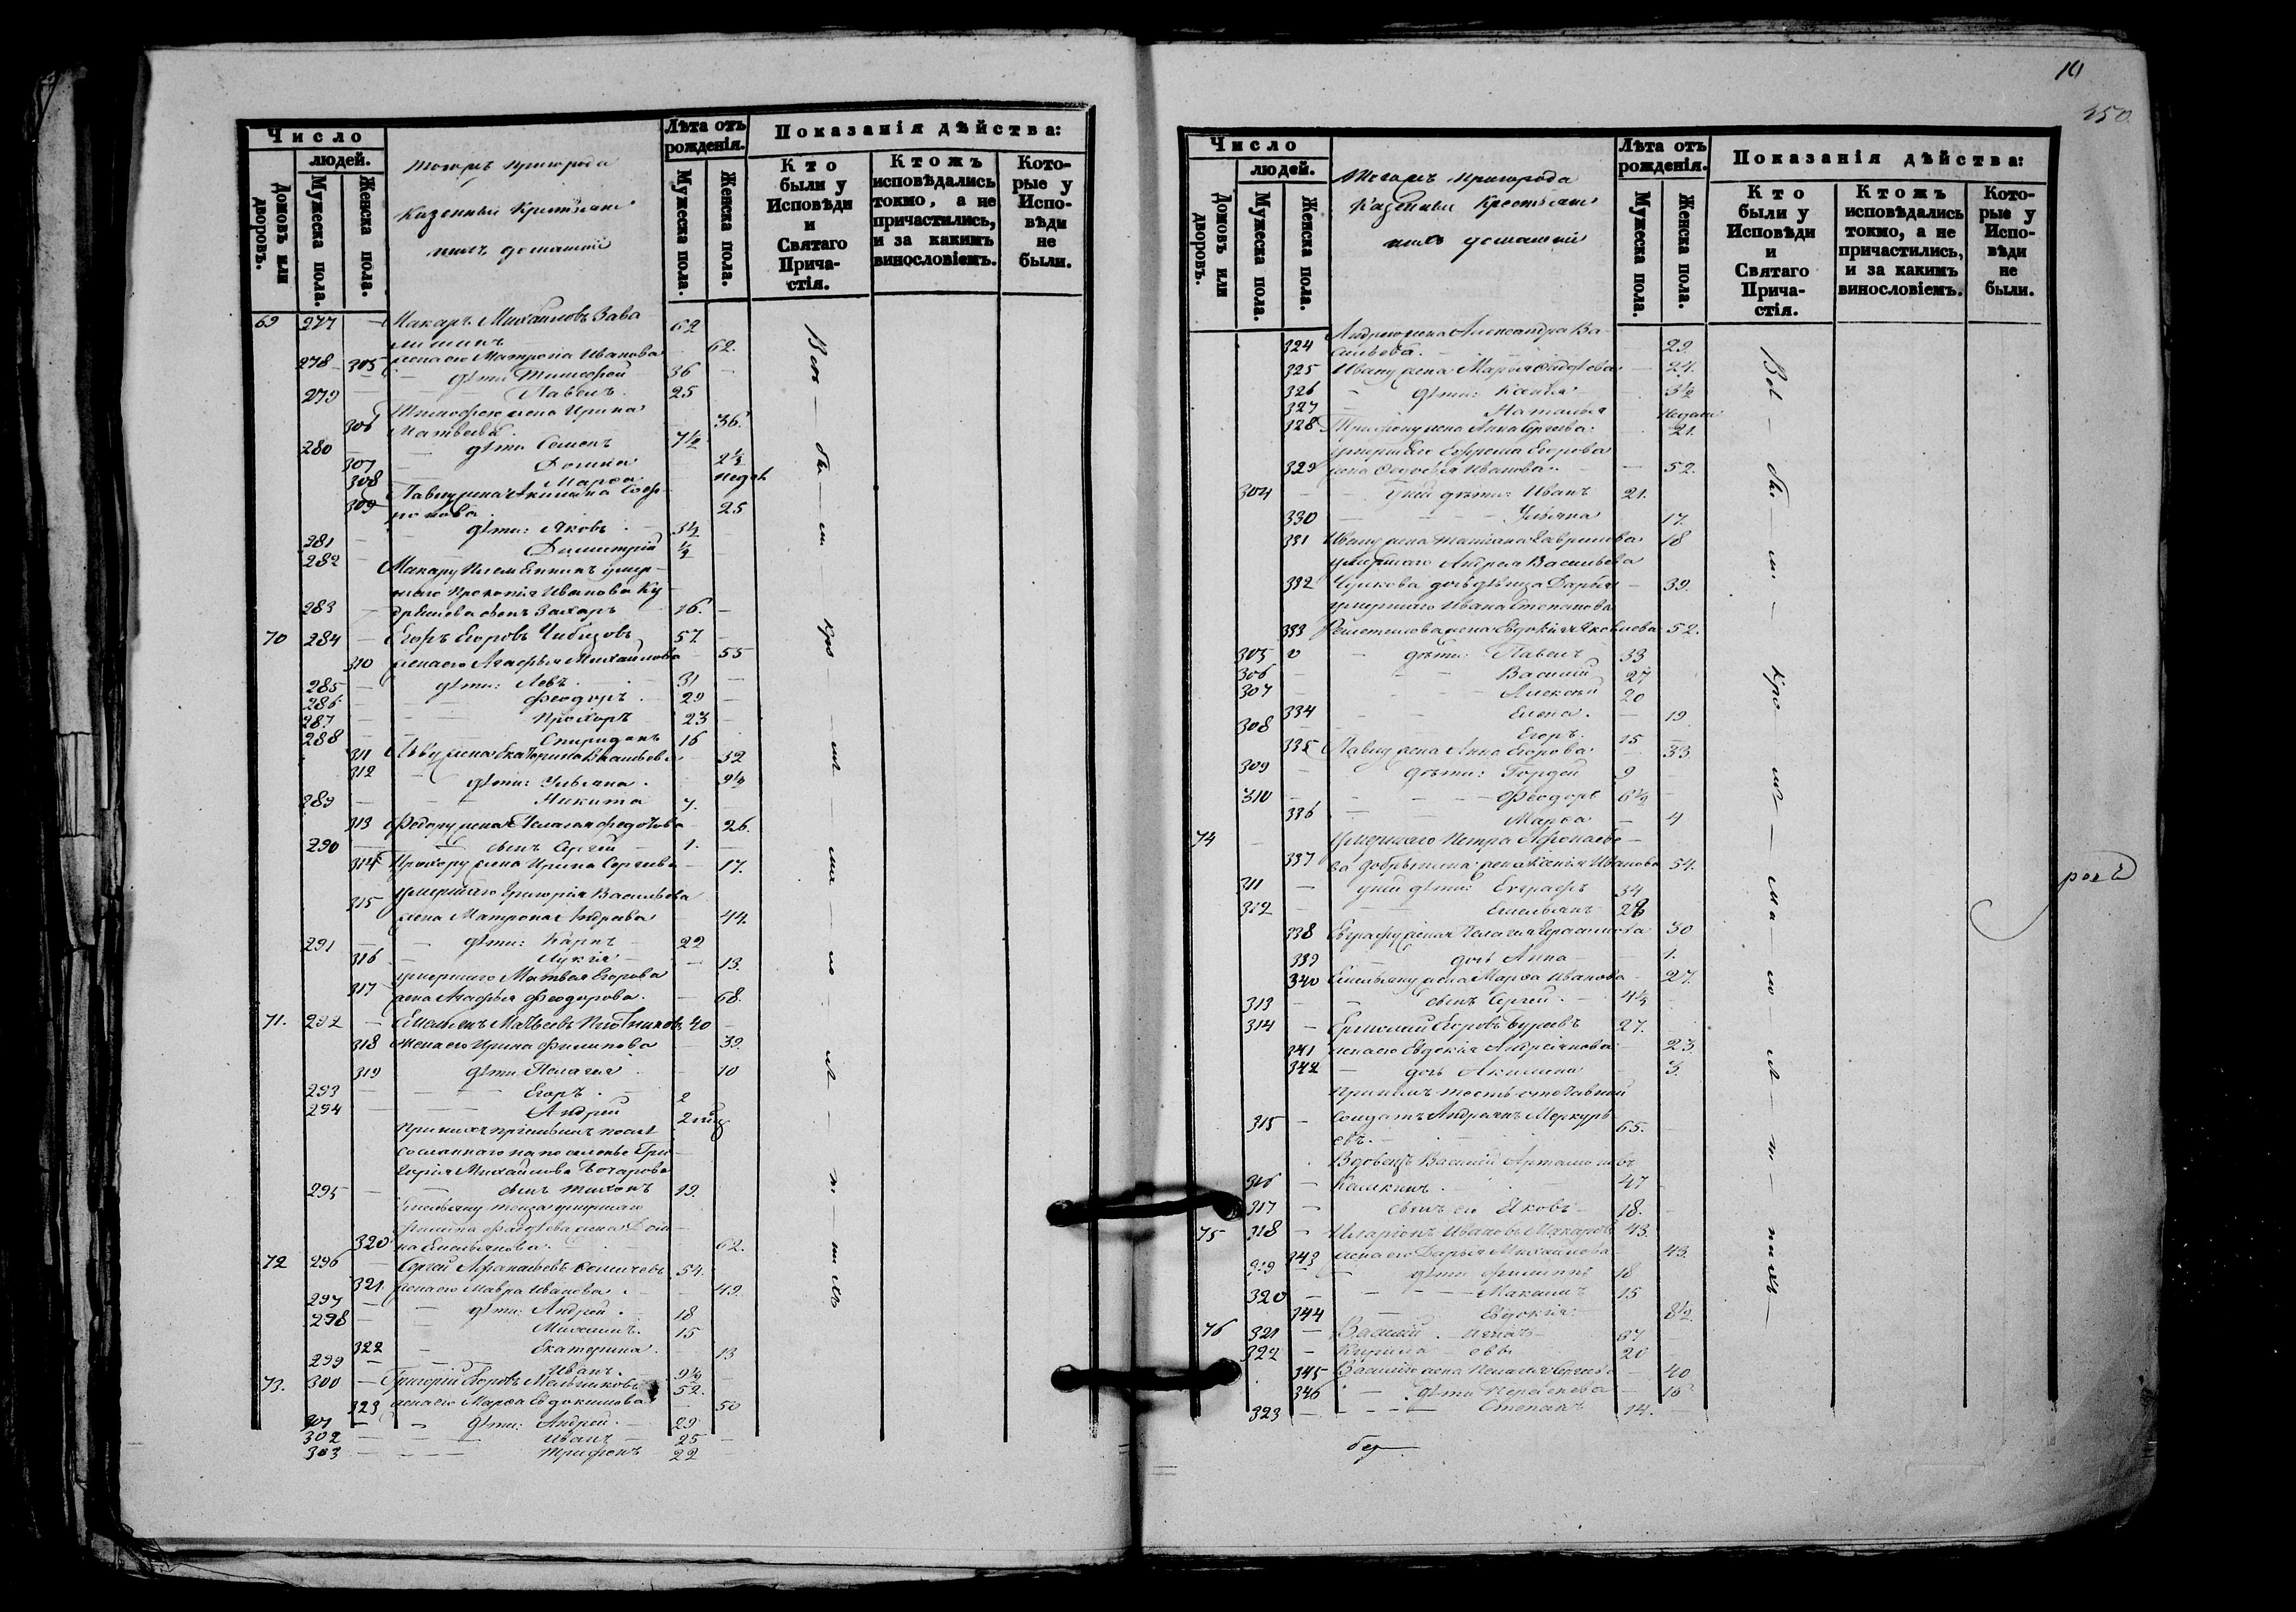 Число
людей.
Домовъ или дворовъ.
Мужеска пола.
Женска пола.
тогожъ пригорода
Казенныи Крестьяне
ихъ домашніи
Лѣта отъ рожденія.
Мужеска пола.
Женска пола.
Показанія дѣйства:
Кто были у Исповѣди и Святаго Причастія.
Ктожъ исповѣдались токмо, а не причастились, и за какимъ винословіемъ.
Которые у Исповѣди не были.
69 277 Макаръ Михайловъ Зава
62
305 жена его Матрона Иванова 62.
278 дѣти: Тимофей 36
279 Павелъ 25
306 Тимофею жена Ирина
Матвеева 36.
280 дѣти Семенъ 7½
307 Домна 2½
308 Марѳа недѣл
309 Павлу жена Акилина Соф-
ронова 25
281 дѣти: Яковъ 3½
282 Димитрій ½
Макару племянникъ умер-
шаго Прокопія Иванова Ку
283 сынъ Захаръ 16.
70 284 Егоръ Егоровъ Чибизовъ 57
310 жена его Агафья Михайлова 55
285 дѣти: Левъ 31
286 Феодоръ 29
287 Прохоръ 23
288 Спиридонъ 16
311 Льву жена Екатерина Васильева 32
312 дѣти: Ульяна 9½
289 Никита 7.
313 Федору жена Пелагея Федотова 26.
290 сынъ Сергей 1.
314 Прохору жена Ирина Сергеева 17.
315 умершаго Григорія Васильева
жена Матрона Андреева 44.
291 дѣти: Карпъ 22
316 Лукія 13.
умершаго Матвея Егорова
317 жена Агафья Феодорова. 68.
71. 292 Емельянъ Матвеевъ Плотниковъ 40
318 жена его Ирина Филипова 39.
319 дѣти Пелагея 10
293 Егоръ 2
294 Андрей 2 нед
При нихъ пріемышъ после
сосланнаго на поселенье Гри-
горія Михайлова Бочарова
295 сынъ Тихонъ 19.
Емельяну теща умершаго
жена Дом-
320 на Емельянова. 62.
72 296 Сергей Афанасьевъ 54.
321 жена его Мавра Иванова 49.
297 дѣти: Андрей 18
298 Михаилъ. 15
322 Екатерина 13
299 Иванъ. 9½
73. 300 Григорій Егоровъ Мельниковъ 52.
323 жена его Марѳа Евдокимова 50
301 дѣти: Андрей 29
302 Иванъ 25
303 Трифонъ 22
Всѣ бы ли кро мѣ ма ло лѣ т нихъ
10
350.
Число
людей.
Домовъ или дворовъ.
Мужеска пола.
Женска пола.
Тогожъ пригорода
Казенныи Крестьяне
ихъ домашніи
Лѣта отъ рожденія.
Мужеска пола.
Женска пола.
Показанія дѣйства:
Кто были у Исповѣди и Святаго Причастія.
Ктожъ исповѣдались токмо, а не причастились, и за какимъ винословіемъ.
Которые у Исповѣди не были.
324 Андрею жена Александра Ва
сильева. 29.
325 Ивану жена Марья 24.
326 дѣти: Ксенія 3½
327 Наталья недели
328 Трифону жена Анна Сергеева. 21.
умершаго Ефрема Егорова
329 жена Феодосья Иванова 52.
304 у ней дѣти: Иванъ 21.
330 Ульяна 17.
331 Ивану жена Татіана Гаврилова 18
умершаго Андрея Васильева
332 Чулкова дочь дѣвица Дарья 39.
умершаго Ивана Степанова
333 жена Евдокія Яковлева 52.
305 дѣти: Павелъ 33
306 Василій 27
307 Алексѣй 20
334 Елена. 19
308 Егоръ. 15
335 Павлу жена Анна Егорова 33
309 дѣти: Гордей 9
310 Феодоръ 6½
336 Марѳа 4
74 умершаго Петра Афонасье-
337 ва Добрынина жена Ксенія Иванова 54.
311 у ней дѣти: Евграфъ 34
312 Емельянъ 28
338 Евграфу жена Пелагея Герасимова 30
339 дочь Анна 1.
340 Емельяну жена Марѳа Иванова 27.
313 сынъ Сергей. 4½
314 Ермолай Егоровъ Буреевъ 27.
341 жена его Евдокія Андреянова 23
342 дочь Акилина 3.
При нихъ тесть отставной
315 солдатъ Андреянъ Меркурь-
евъ. 65.
Вдовецъ Василій Артамоновъ
316 Калкинъ. 47
317 сынъ его Яковъ 18.
75 318 Иларіонъ Ивановъ Макаровъ 43.
343 жена его Дарья Михайлова 43.
319 дѣти Филиппъ 18
320 15
344 Евдокія 8½
76 321 Василій 37
322 Кирила 20
345 Василію жена Пелагея Сергеева 40
346 дѣти 16
323 Степанъ 14.
Всѣ бы ли кро мѣ ма ло лѣ т нихъ